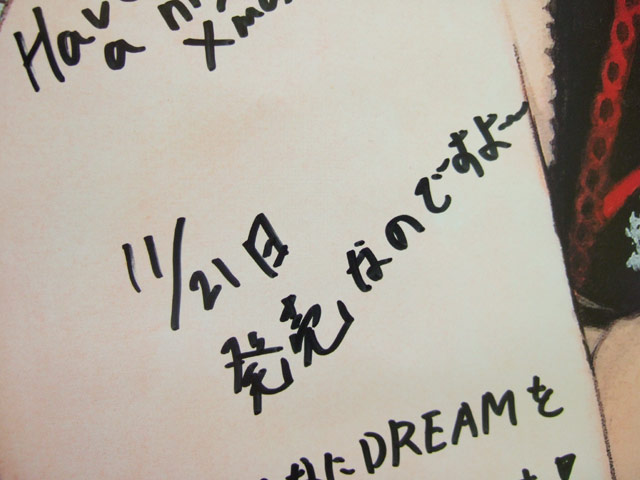 Have
a
Xmas
11/21日
発売なのですよ〜
なにDREAMを